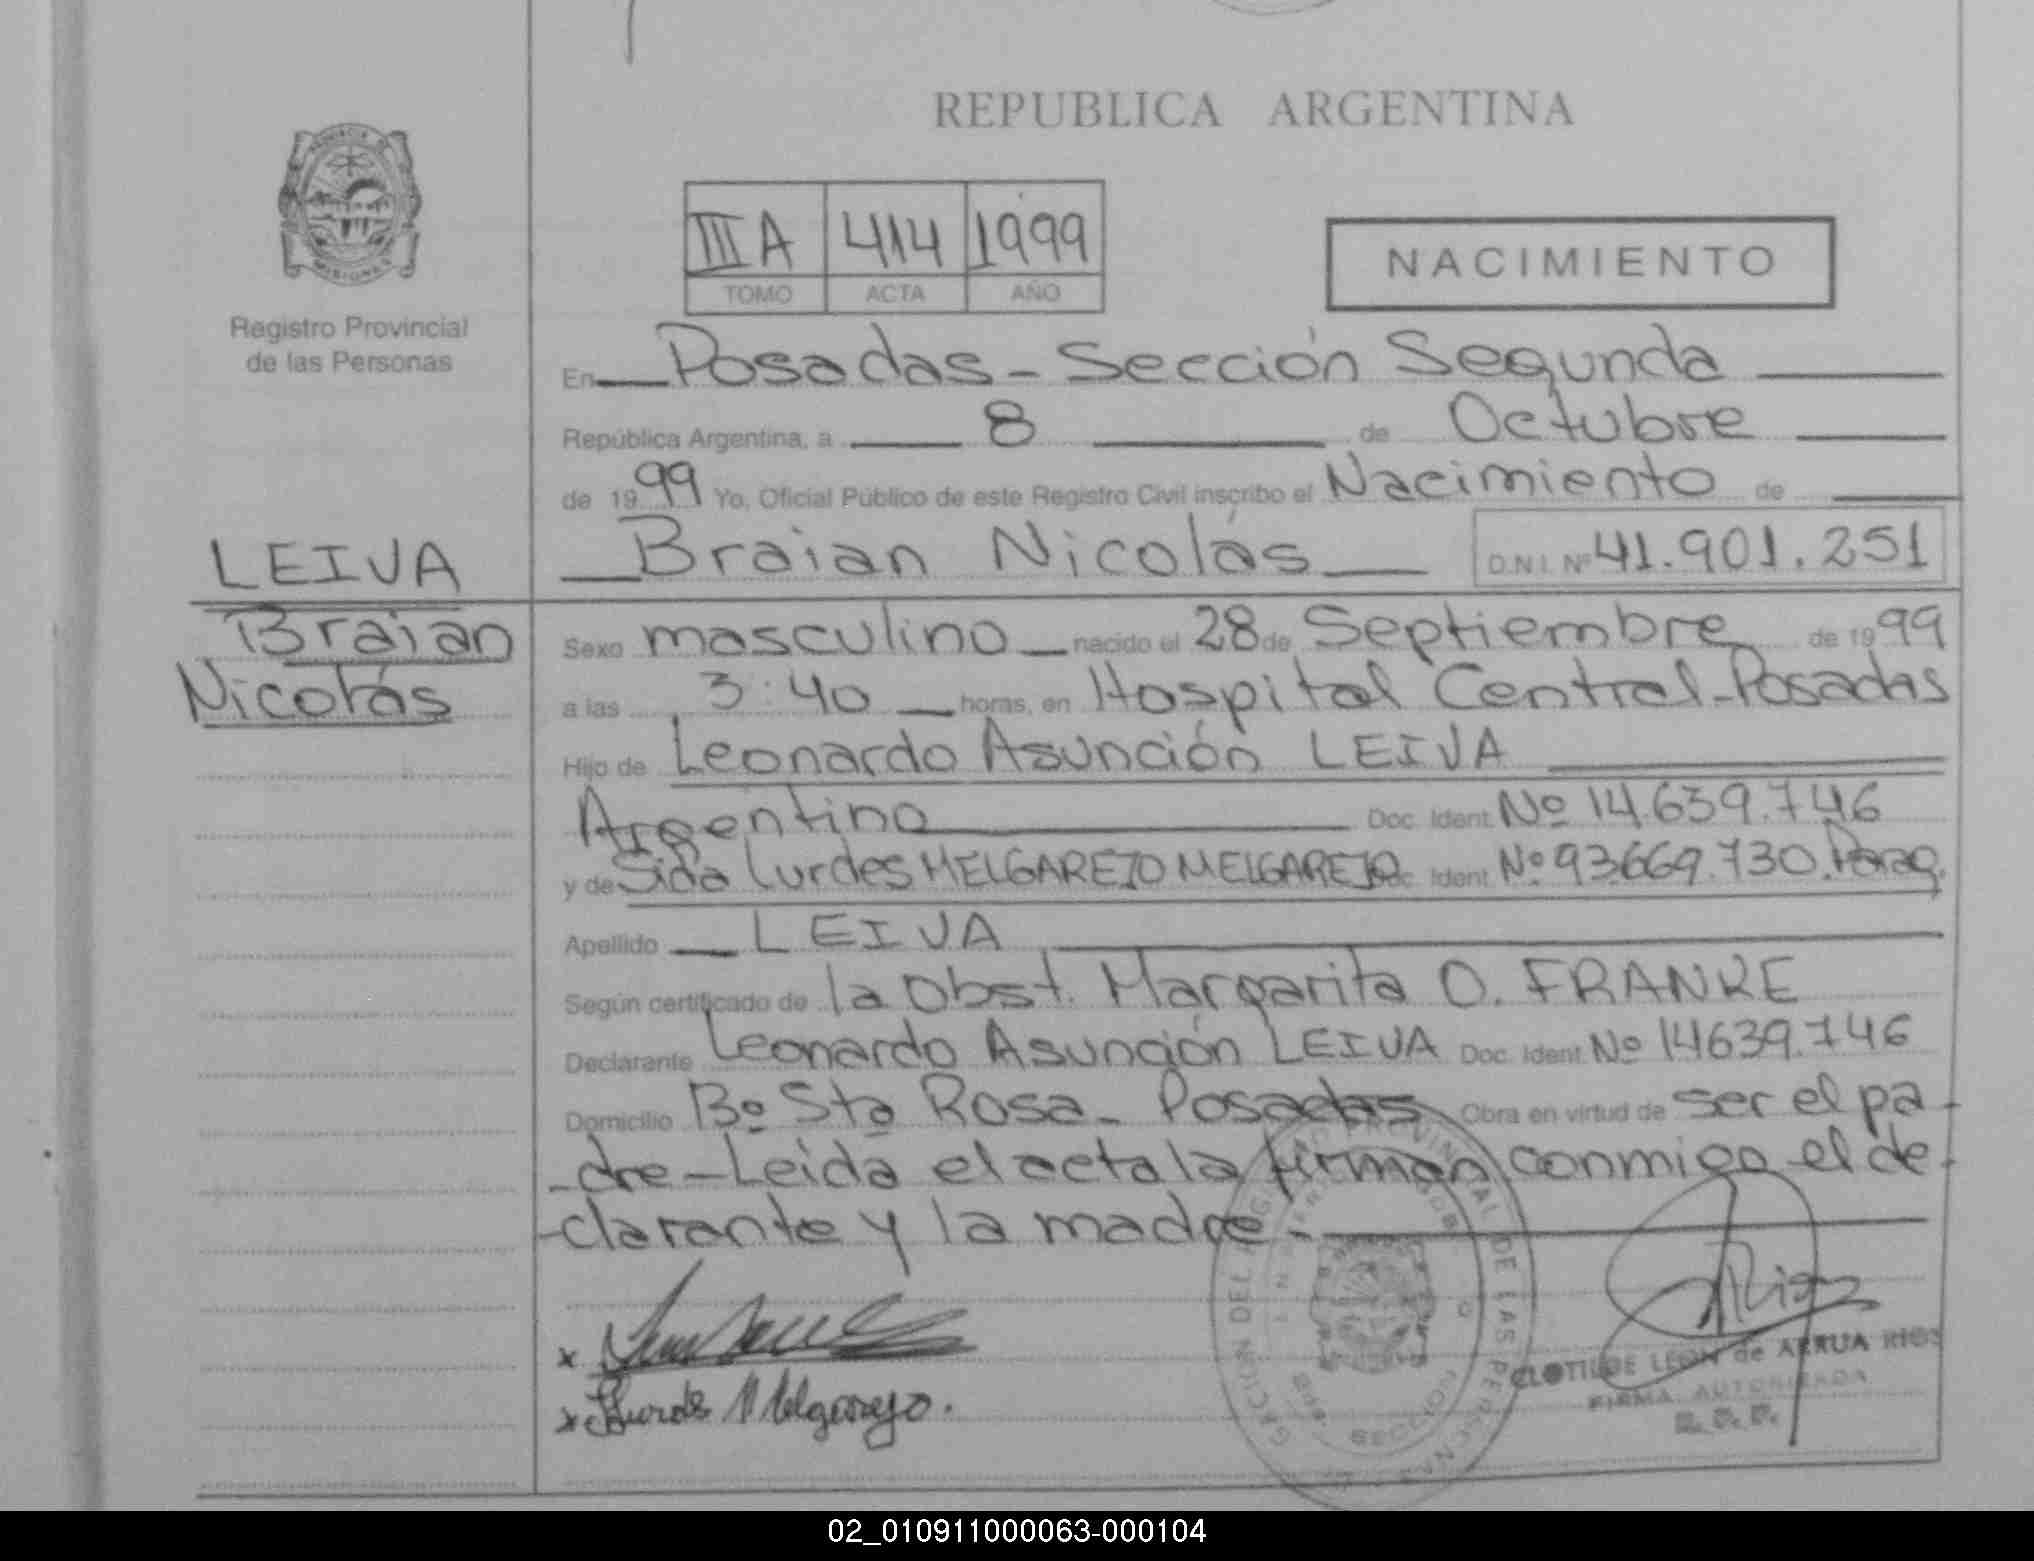 REPUBLICA ARGENTINA
PROVINCIA DE
MISIONES
Registro Provincial
de las Personas
III A 414 1999
TOMO ACTA AÑO
NACIMIENTO
En Posadas - Sección Segunda
República Argentina, a 8 de Octubre
de 1999 Yo, Oficial Público de este Registro Civil inscribo el Nacimiento de
LEIVA
Braian Nicolás D.N.I. Nº 41.901.251
Braian
Nicolás
Sexo masculino nacido el 28 de Septiembre de 1999
a las 3:40 horas, en Hospital Central-Posadas
Hijo de Leonardo Asunción LEIVA
Argentino Doc. Ident. Nº 14.639.746
y de Sida Lurdes MELGAREJO MELGAREJO Doc. Ident. Nº 93.669.730. Parag.
Apellido LEIVA
Según certificado de la Obst. Margarita O. FRANKE
Declarante Leonardo Asunción LEIVA Doc. Ident. Nº 14639.746
Domicilio Bº Sta Rosa - Posadas Obra en virtud de ser el pa-
-dre - Leída el acta la firman conmigo el de-
-clarante y la madre.-
x
x Lurdes Melgarejo.
Rios
CLOTILDE LEON de ARRUA RIOS
FIRMA AUTORIZADA
R. P. P.
PROVINCIAL DE LAS PERSONAS
02_010911000063-000104